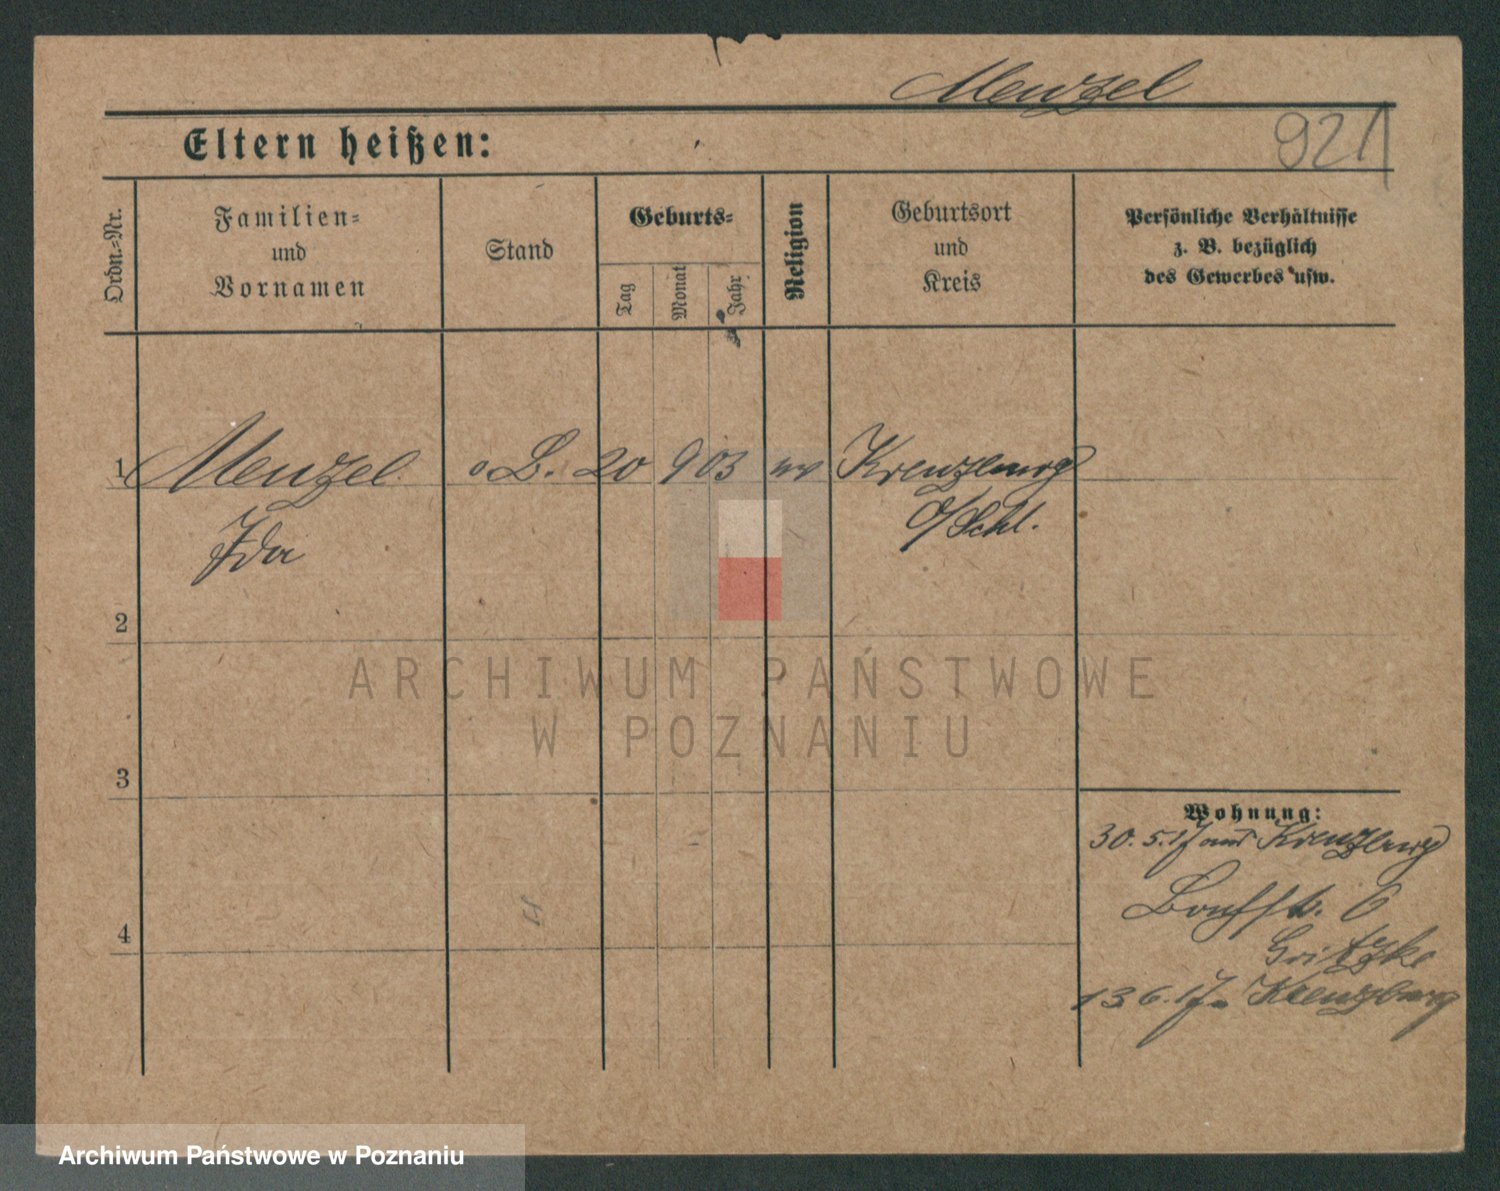 Menzel
921
Eltern heißen:
Ordn.=Nr.
Familien=
und
Vornamen
Stand
Geburts=
Tag
Monat
Jahr
Religion
Geburtsort
und
Kreis
Persönliche Verhältnisse
z. B. bezüglich
des Gewerbes usw.
1 Menzel o. B. 20 9 03 ev Kreuzburg
Ida
O/Schl.
2
3
4
Wohnung:
30. 5. 17 aus Kreuzburg
6
Gritzke
13 6. 17 n Kreuzburg
ARCHIWUM PAŃSTWOWE
W POZNANIU
Archiwum Państwowe w Poznaniu